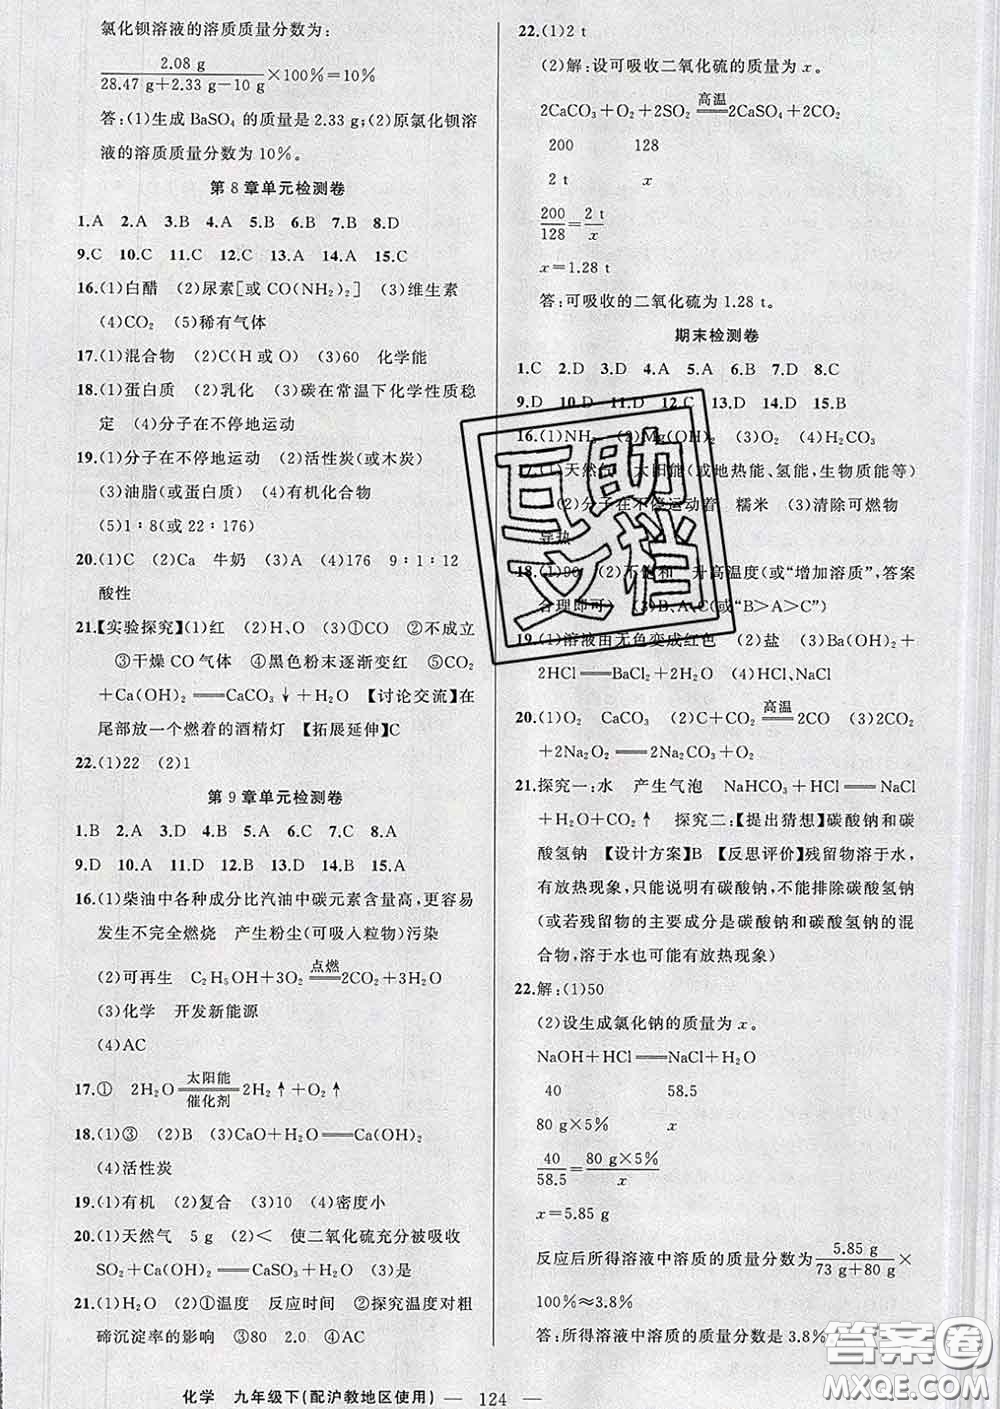 氯化钡溶液的溶质质量分数为:
2.08 g
28.47 g+2.33 g−10 g ×100%=10%
答:(1)生成BaSO4的质量是2.33 g;(2)原氯化钡溶
液的溶质质量分数为10%。
第8章单元检测卷
1.A 2.A 3.B 4.A 5.A 6.B 7.B 8.D
9.C 10.C 11.C 12.C 13.A 14.A 15.C
16.(1)白醋 (2)尿素[或CO(NH2)2] (3)维生素
(4)CO2 (5)稀有气体
17.(1)混合物 (2)C(H或O) (3)60 化学能
18.(1)蛋白质 (2)乳化 (3)碳在常温下化学性质稳
定 (4)分子在不停地运动
19.(1)分子在不停地运动 (2)活性炭(或木炭)
(3)油脂(或植物油) (4)有机化合物
(5)1∶8(或22∶176)
20.(1)C (2)Ca 牛奶 (3)A (4)176 9∶1∶12
酸性
21.【实验探究】(1)红 (2)H2O (3)①CO ②不成立
③干燥CO气体 ④黑色粉末逐渐变红 ⑤CO2
+Ca(OH)2══CaCO3↓+H2O 【讨论交流】在
尾部放一个燃着的酒精灯 【拓展延伸】C
22.(1)22 (2)1
第9章单元检测卷
1.B 2.A 3.D 4.A 5.D 6.B 7.C 8.A
9.D 10.A 11.C 12.D 13.A 14.D 15.A
16.(1)柴油中各种成分比汽油中碳元素含量高,更容易
发生不完全燃烧 产生粉尘(可吸入粒物)污染
(2)可再生 C2H5OH+3O2 点燃══ 2CO2+3H2O
(3)化学 开发新能源
(4)AC
17.① 2H2O 太阳能══催化剂 2H2↑+O2↑
18.(1)③ (2)B (3)CaO+H2O══Ca(OH)2
(4)活性炭
19.(1)有机 (2)复合 (3)10 (4)密度小
20.(1)天然气 5 g (2)< 使二氧化硫充分被吸收
SO2+Ca(OH)2══CaSO3+H2O (3)是
21.(1)H2O (2)①温度 反应时间 ②探究温度对粗
碲沉淀率的影响 ③80 2.0 ④AC
22.(1)2 t
(2)解:设可吸收二氧化硫的质量为x。
2CaCO3+O2+2SO2 高温══ 2CaSO4+2CO2
200 128
2 t x
200/128=2 t/x
x=1.28 t
答:可吸收的二氧化硫为1.28 t。
期末检测卷
1.C 2.D 3.D 4.A 5.A 6.B 7.D 8.C
9.D 10.D 11.D 12.C 13.D 14.D 15.B
16.(1)NH3 (2)Mg(OH)2 (3)O2 (4)H2CO3
17.(1)天然气 太阳能(或地热能、氢能、生物质能等)
(2)分子在不停运动着 糯米 (3)清除可燃物
导热
18.(1)90 (2)不饱和 升高温度(或“增加溶质”,答案
合理即可) (3)B、A、C(或“B>A>C”)
19.(1)溶液由无色变成红色 (2)盐 (3)Ba(OH)2+
2HCl══BaCl2+2H2O (4)HCl、NaCl
20.(1)O2 CaCO3 (2)C+CO2 高温══ 2CO (3)2CO2
+2Na2O2══2Na2CO3+O2
21.探究一:水 产生气泡 NaHCO3+HCl══NaCl
+H2O+CO2↑ 探究二:【提出猜想】碳酸钠和碳
酸氢钠 【设计方案】B 【反思评价】残留物溶于水,
有放热现象,只能说明有碳酸钠,不能排除碳酸氢钠
(或若残留物的主要成分是碳酸钠和碳酸氢钠的混
合物,溶于水也可能有放热现象)
22.解:(1)50
(2)设生成氯化钠的质量为x。
NaOH+HCl══NaCl+H2O
40 58.5
80 g×5% x
40/58.5=80 g×5%/x
x=5.85 g
反应后所得溶液中溶质的质量分数为 5.85 g/73 g+80 g ×
100%≈3.8%
答:所得溶液中溶质的质量分数是3.8%
互助
文档
答案圈
MXQE.COM
化学 九年级下(配沪教地区使用) — 124 —